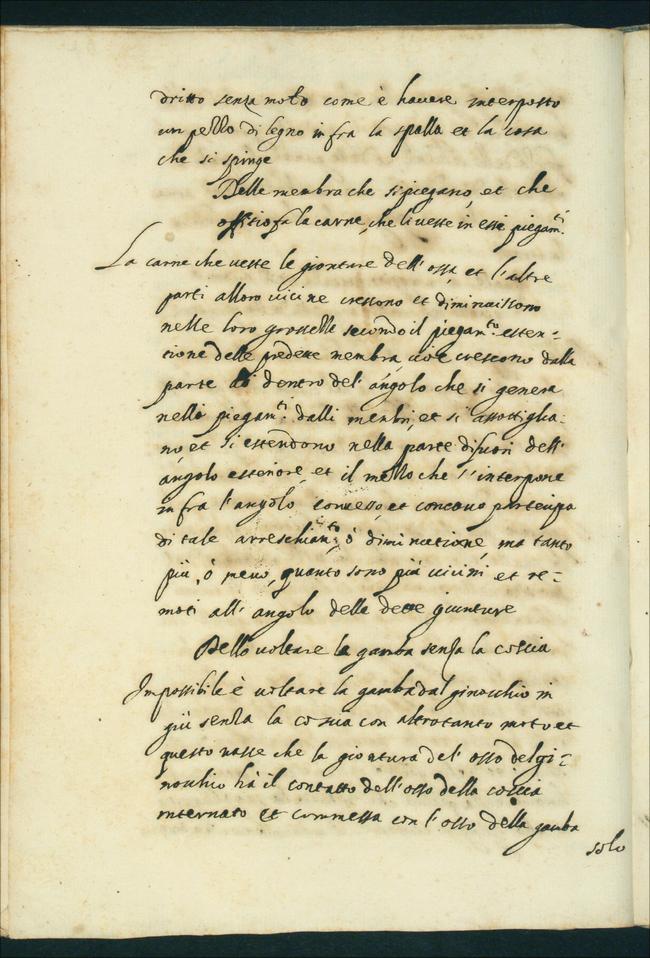 dritto senza moto come è havere interposto
un pezzo di legno in fra la spalla et la cosa
che si spinge
Delle membra che si piegano, et che
offitio fa la carne, che li veste in esse piegam.ti
La carne che veste le gionture dell'ossa, et l'altre
parti alloro vicine crescono et diminuissono
nelle loro grossezze secondo il piegam.to esten=
tione delle predette membra, cioè crescono dalla
parte di dentro del' angolo che si genera
nelli piegam.ti dalli membri, et si assottiglia=
no, et si estendono nella parte di fuori dell'
angolo esteriore, et il mezzo che s'interpone
in fra l'angolo convesso, et concavo participa
di tale acreschiam.to, ò diminutione, ma tanto
più, ò meno, quanto sono più vicini et re=
moti all' angolo delle dette giunture
Dello voltare la gamba senza la coscia
Impossibile è voltare la gamba dal ginocchio in
giù senza la coscia con altrotanto moto et
questo nasse che la giontura del' osso del gi=
nocchio hà il contatto dell'osso della coscia
internato et commessa con l'osso della gamba
solo